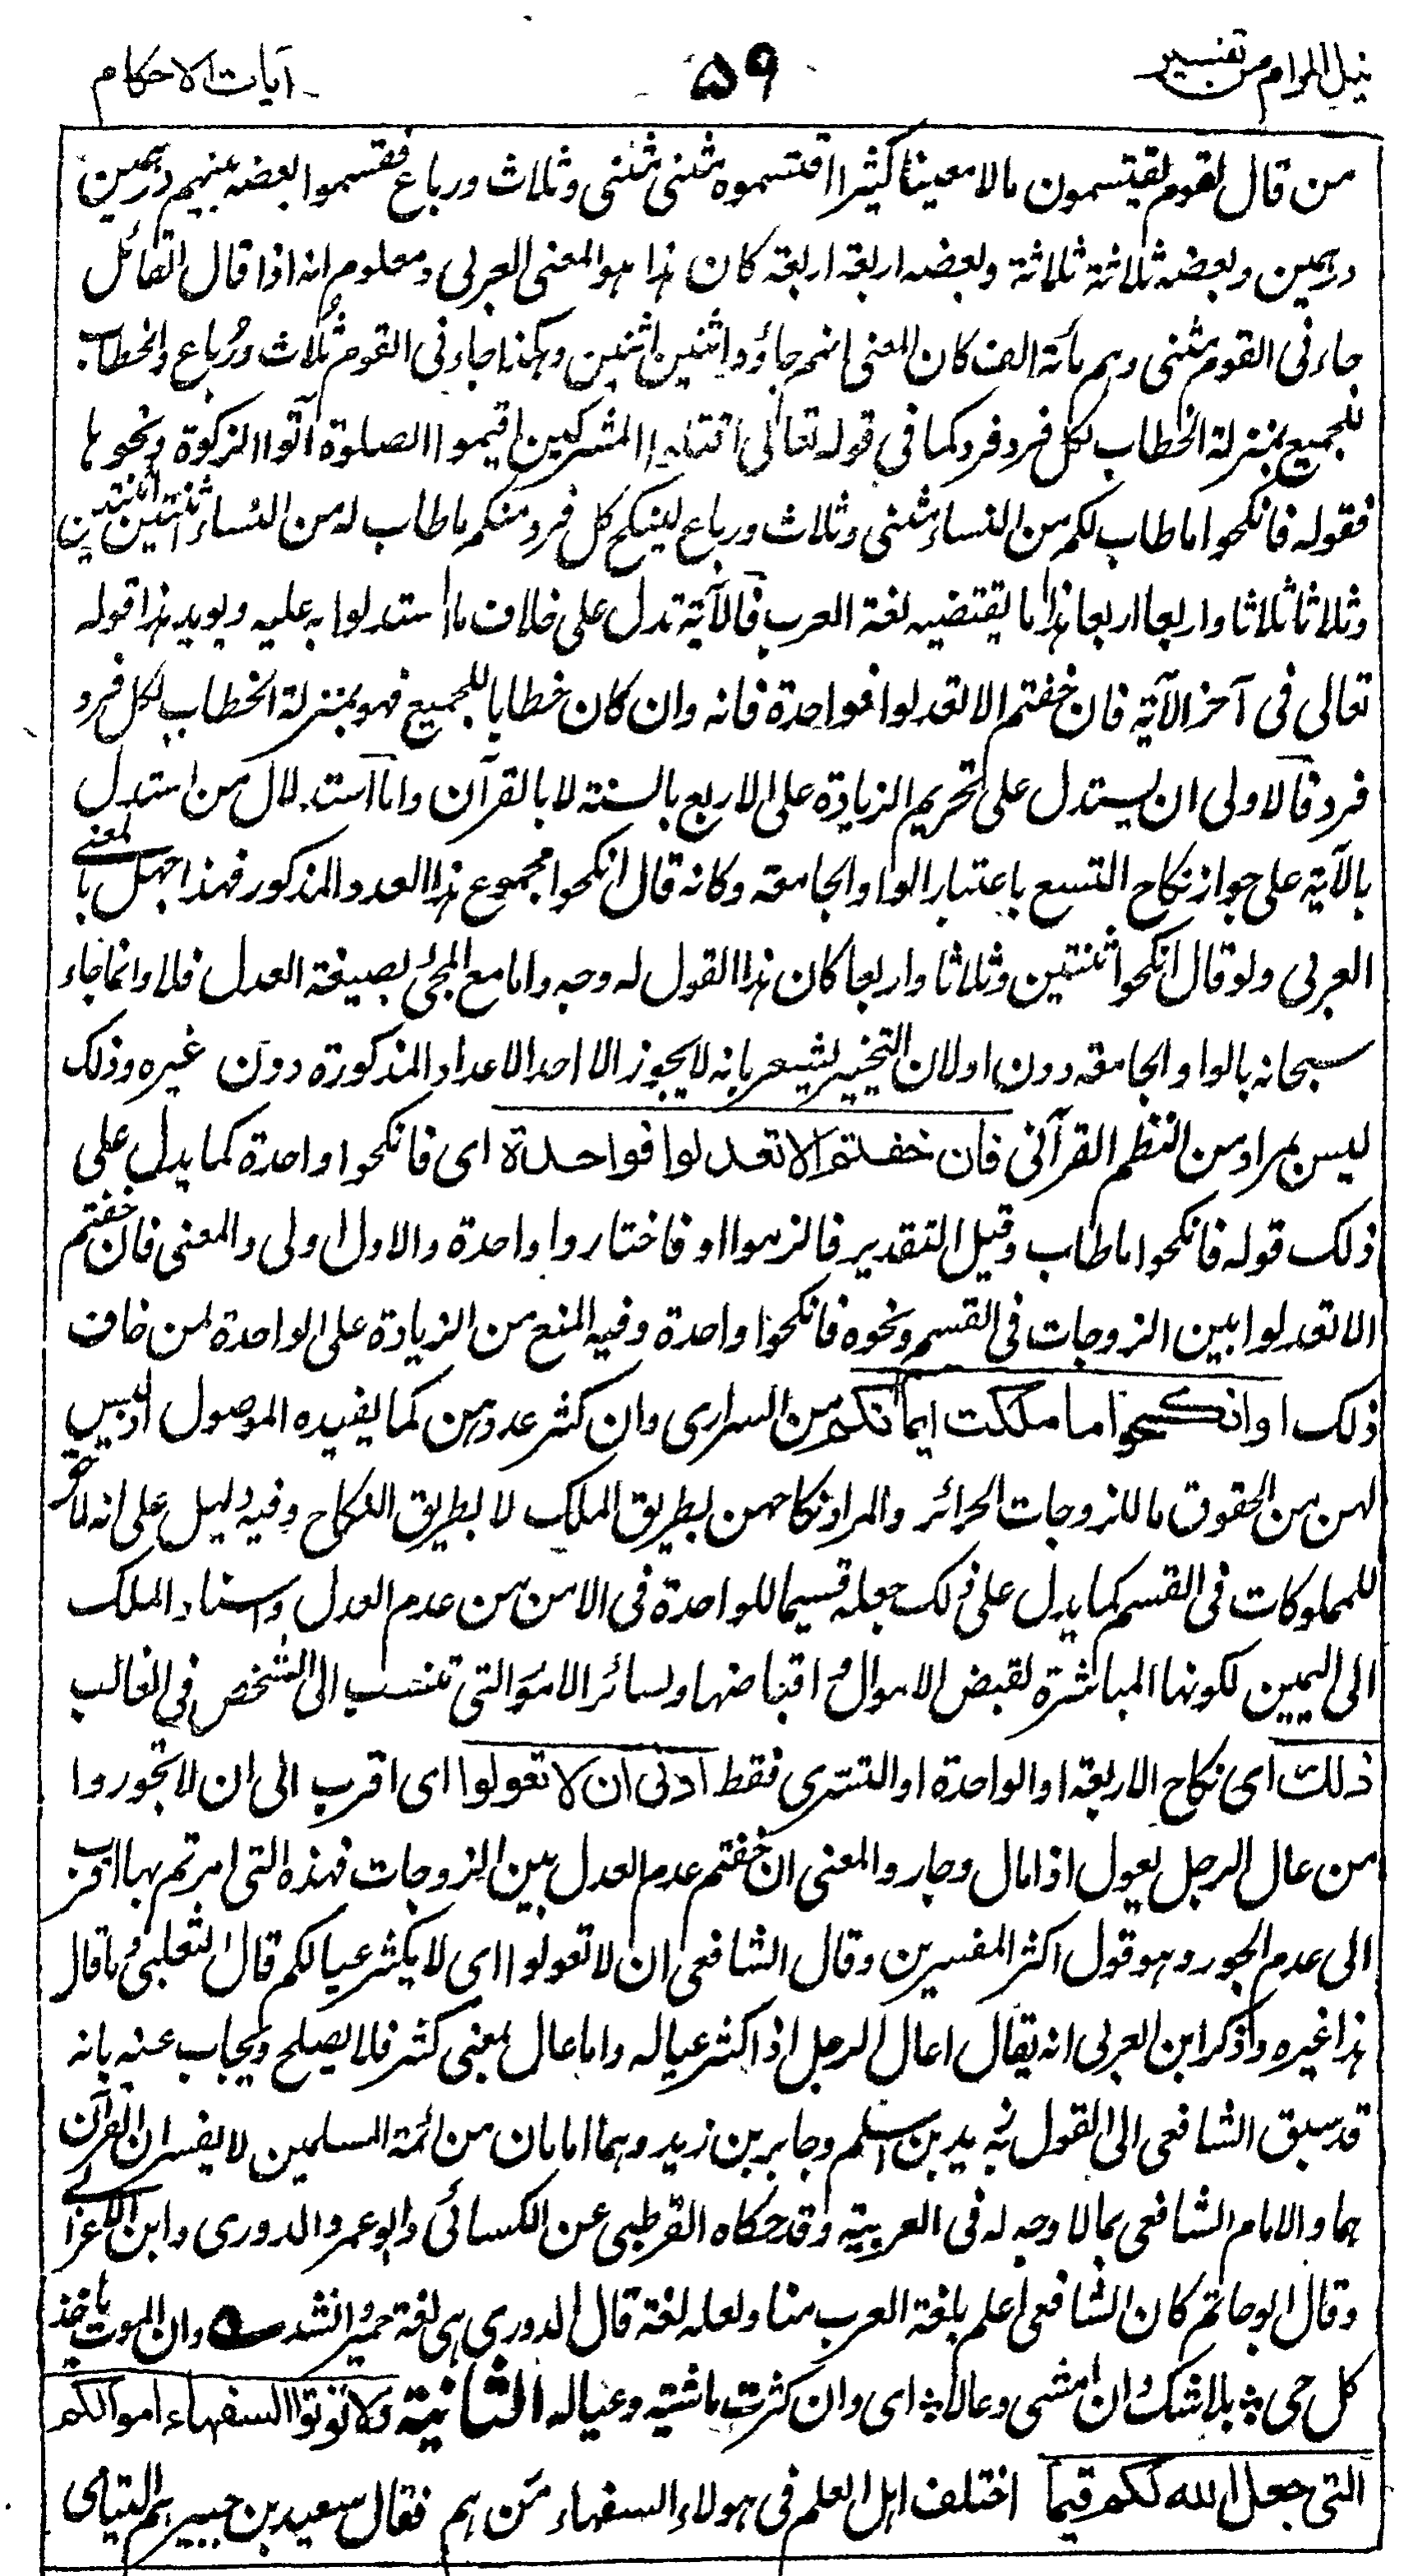 نيل المرام من تفسير
٥٩
آيات الاحكام
من قال لقوم يقتسمون مالا معينا كثيرا اقتسموه مثنى مثنى وثلاث ورباع فقسموا بعضه بينهم درهمين
درهمين وبعضه ثلاثة ثلاثة وبعضه اربعة اربعة كان هذا هو المعنى العربى ومعلوم انه اذا قال القائل
جاءنى القوم مثنى وهم مائة الف كان المعنى انهم جاؤوا اثنين اثنين وهكذا جاءنى القوم ثُلاث ورُباع والخطاب
للجميع بمنزلة الخطاب لكل فرد فرد كما فى قوله تعالى اقتلوا المشركين اقيموا الصلوة آتوا الزكوة ونحوها
فقوله فانكحوا ما طاب لكم من النساء مثنى وثلاث ورباع لينكح كل فرد منكم ما طاب له من النساء ثنتين اثنتين
وثلاثا ثلاثا واربعا اربعا هذا ما يقتضيه لغة العرب فالآية تدل على خلاف ما استدلوا به عليه ويويد هذا قوله
تعالى فى آخر الآية فان خفتم الا تعدلوا فواحدة فانه وان كان خطابا للجميع فهو بمنزلة الخطاب لكل فرد
فرد فالاولى ان يستدل على تحريم الزيادة على الاربع بالسنة لا بالقرآن واما استدلال من استدل
بالآية على جواز نكاح التسع باعتبار الواو الجامعة وكانه قال انكحوا مجموع هذا العدد المذكور فهذا جهل بالمعنى
العربى ولو قال انكحوا ثنتين وثلاثا واربعا كان هذا القول له وجه واما مع المجئ بصيغة العدل فلا وانما جاء
سبحانه بالواو الجامعة دون او لان التخيير يشعر بانه لا يجوز الا احد الاعداد المذكورة دون غيره وذلك
ليس بمراد من النظم القرآنى فان خفتم الا تعدلوا فواحدة اى فانكحوا واحدة كما يدل على
ذلك قوله فانكحوا ما طاب وقيل التقدير فالزموا او فاختاروا واحدة والاول اولى والمعنى فان خفتم
الا تعدلوا بين الزوجات فى القسم ونحوه فانكحوا واحدة وفيه المنع من الزيادة على الواحدة لمن خاف
ذلك او انكحوا ما ملكت ايمانكم من السرارى وان كثر عددهن كما يفيده الموصول اذ ليس
لهن من الحقوق ما للزوجات الحرائر والمراد نكاحهن بطريق الملك لا بطريق النكاح وفيه دليل على انه لا حق
للمملوكات فى القسم كما يدل على ذلك جعله قسيما للواحدة فى الامن من عدم العدل واسناد الملك
الى اليمين لكونها المباشرة لقبض الاموال و اقباضها ولسائر الامور التى تنسب الى الشخص فى الغالب
ذلك اى نكاح الاربعة او الواحدة او التسرى فقط ادنى ان لا تعولوا اى اقرب الى ان لا تجوروا
من عال الرجل يعول اذا مال وجار والمعنى ان خفتم عدم العدل بين الزوجات فهذه التى امرتم بها اقرب
الى عدم الجور وهو قول اكثر المفسرين وقال الشافعى ان لا تعولوا اى لا يكثر عيالكم قال الثعلبى وما قال
هذا غيره وذكر ابن العربى انه يقال اعال الرجل اذا كثر عياله واما عال بمعنى كثر فلا يصلح ويجاب عنه بانه
قد سبق الشافعى الى القول به زيد بن اسلم وجابر بن زيد وهما امامان من ائمة المسلمين لا يفسران القرآن
هما والامام الشافعى بما لا وجه له فى العربية وقد حكاه القرطبى عن الكسائى وابو عمر والدورى وابن الاعرابى
وقال ابو حاتم كان الشافعى اعلم بلغة العرب منا ولعله لغة قال الدورى هى لغة حمير وانشد ٥ وان الموت ياخذ
كل حى ؞ بلا شك وان امشى وعالا ؞ اى وان كثرت ماشيته وعياله الثانية ولا تؤتوا السفهاء اموالكم
التى جعل الله لكم قيما اختلف اهل العلم فى هولاء السفهاء من هم فقال سعيد بن جبير هم اليتامى